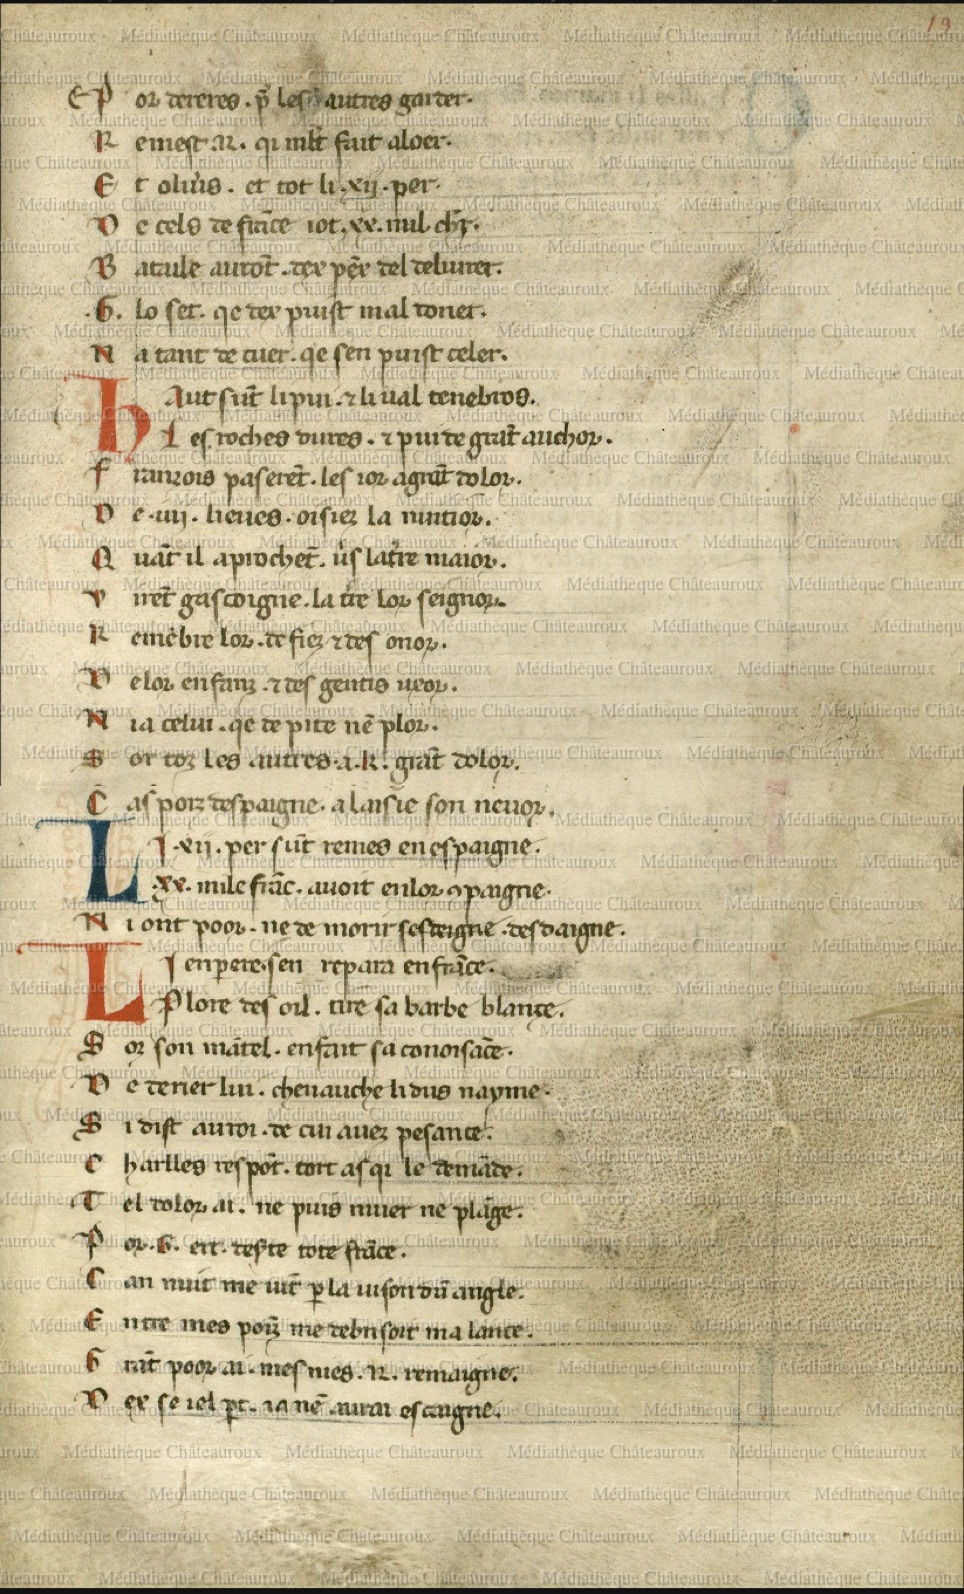 19
E P or dereres . p̄ les autres garder .
R emest .R. qi mlt fait aloer .
E t oliũs . et tot li .xij. per .
D e cels de frãce iot .xx. mil chr̄ .
B ataile auront . dex pẽs del deliurer .
.G. lo set . qe dex puist mal doner .
N a tant de cuer . qe sen puist celer .
H Aut sũt li pui . ⁊ li ual tenebros .
L es roches dures . ⁊ pui de grãt auchor .
F ranzois paserẽt . les ior a grãt dolor .
D e .iiij. lieues . oisiez la nuntior .
Q uãt il aprochẽt . ũs la t̃re maior .
V irẽt gascoigne . la t̃re lor seignor .
R emẽbre lor . de fiez ⁊ des onor .
D e lor enfanz . ⁊ des gentis uxor .
N i a celui . qe de pite nẽ plor .
S or toz les autres . a .K. grãt dolor .
C as porz despaigne . a laisie son neuor .
L I .xij. per sũt remes en espaigne .
.xx. mile frãc . auoit en lor ꝯpaigne .
N i ont poor . ne de morir desdaigne .
L I enꝑere . sen repaira en frãce .
Plore des oil . tire sa barbe blance .
S or son mãtel . en fait sa conoisãce .
D e derier lui . cheuauche li dus nayme .
S i dist au roi . de cui auez pesance .
C harlles respõt . tort as qi le demãde .
T el dolor ai . ne puis muer ne plãge .
P or .G. ert . deste tote frãce .
C an nuit me uĩt ꝑ la uison dũ angle .
E ntre mes poĩz me debrisoit ma lance .
G rãt poor ai . mes nies .R. remaigne .
D ex se iel ꝑt . ia nẽ aurai escaigne .
Médiathèque Châteauroux